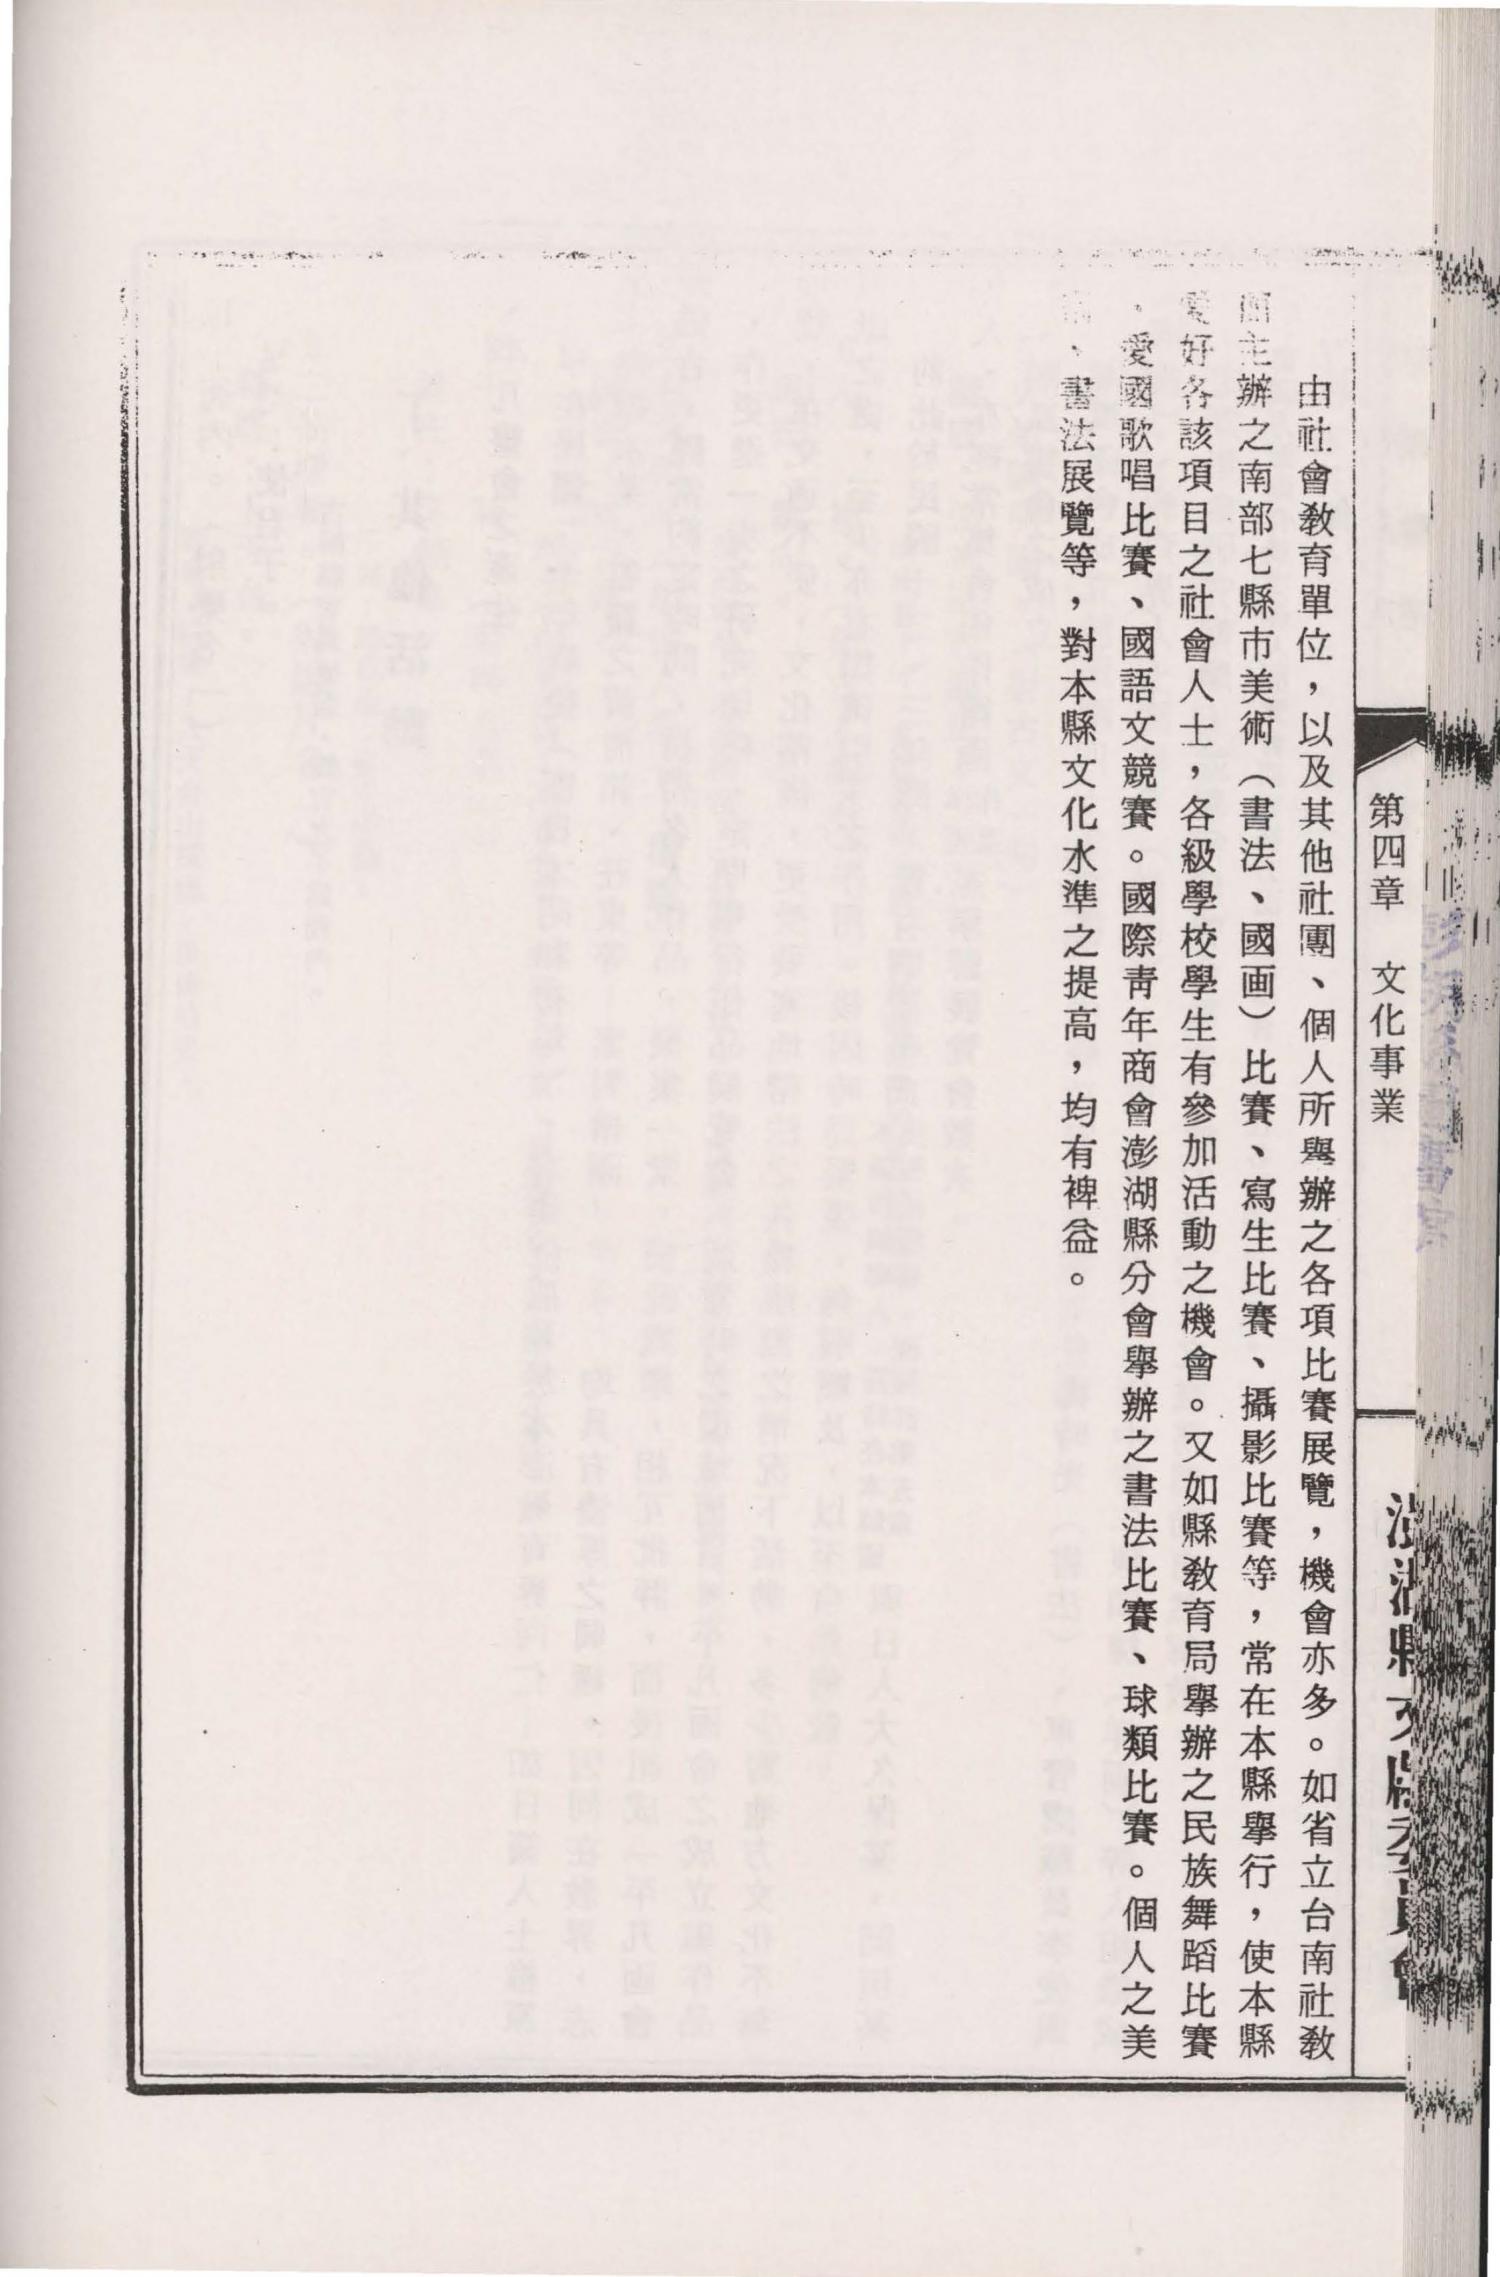 第四章　文化事業
澎湖縣文獻委員會
由社會教育單位，以及其他社團、個人所舉辦之各項比賽展覽，機會亦多。如省立台南社教
館主辦之南部七縣市美術（書法、國画）比賽、寫生比賽、攝影比賽等，常在本縣舉行，使本縣
愛好各該項目之社會人士，各級學校學生有參加活動之機會。又如縣教育局舉辦之民族舞蹈比賽
、愛國歌唱比賽、國語文競賽。國際青年商會澎湖縣分會舉辦之書法比賽、球類比賽。個人之美
術、書法展覽等，對本縣文化水準之提高，均有裨益。